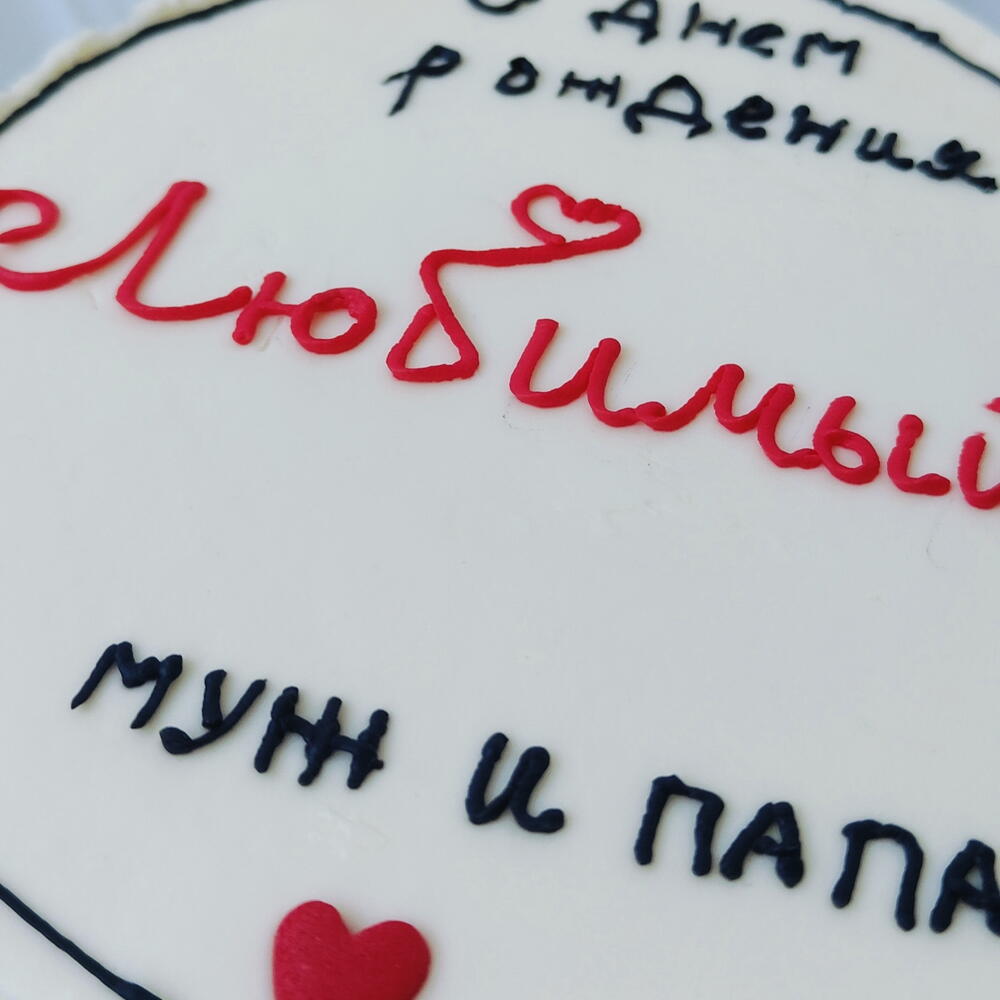 С днем
рождения
Любимый
МУЖ И ПАПА